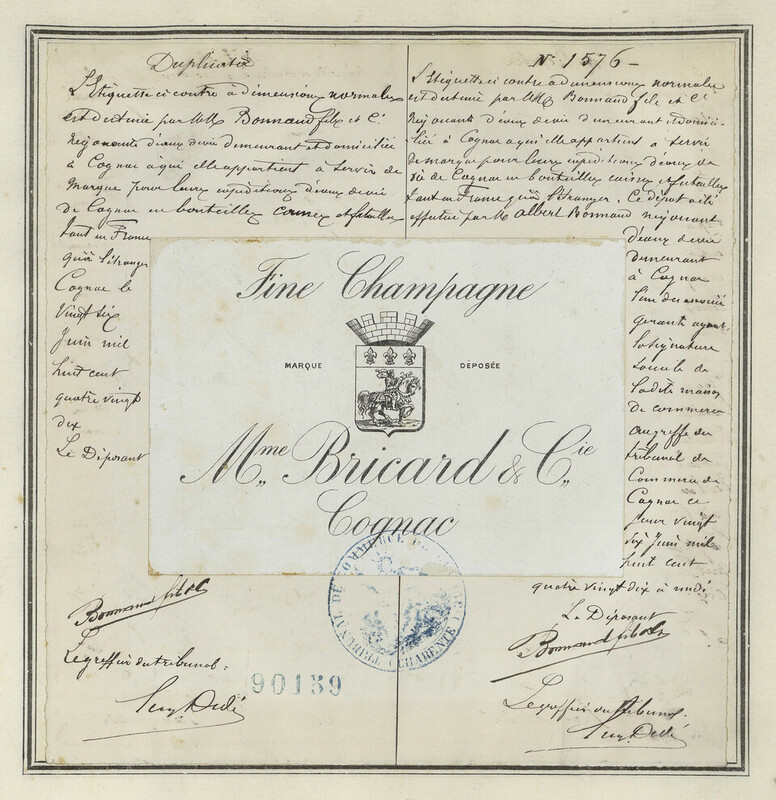 Duplicata
L'Etiquette ci contre à dimensions normales
est destinée par MM Bonnaud fils et Cie
négociants d'eaux de vie demeurant et domiciliés
à Cognac à qui elle appartient à servir de
marque pour leurs expéditions d'eaux de vie
de Cognac en bouteilles caisses et futailles
tant en France
qu'à l'étranger
Cognac le
Vingt six
Juin mil
huit cent
quatre vingt
dix
Le Déposant
Bonnaud fils & Cie
Le greffier du tribunal :
90159
N° 1576 -
L'Etiquette ci contre à dimensions normales
est destinée par MM Bonnaud fils et Cie
négociants d'eaux de vie demeurant et domici-
liés à Cognac à qui elle appartient à servir
de marque pour leurs expéditions d'eaux de
vie de Cognac en bouteilles caisses et futailles
tant en France qu'à l'étranger. Ce dépôt a été
effectué par M Albert Bonnaud négociant
d'eaux de vie
demeurant
à Cognac
l'un des associés
gérants ayant
la signature
sociale de
la dite maison
de commerce
au greffe du
tribunal de
Commerce de
Cognac ce
jour vingt
six Juin mil
huit cent
quatre vingt dix à midi
Le Déposant
Bonnaud fils & Cie
Le greffier du tribunal.
Fine Champagne
MARQUE DÉPOSÉE
Mme Bricard & Cie
Cognac
TRIBUNAL DE COMMERCE DE COGNAC (CHARENTE)